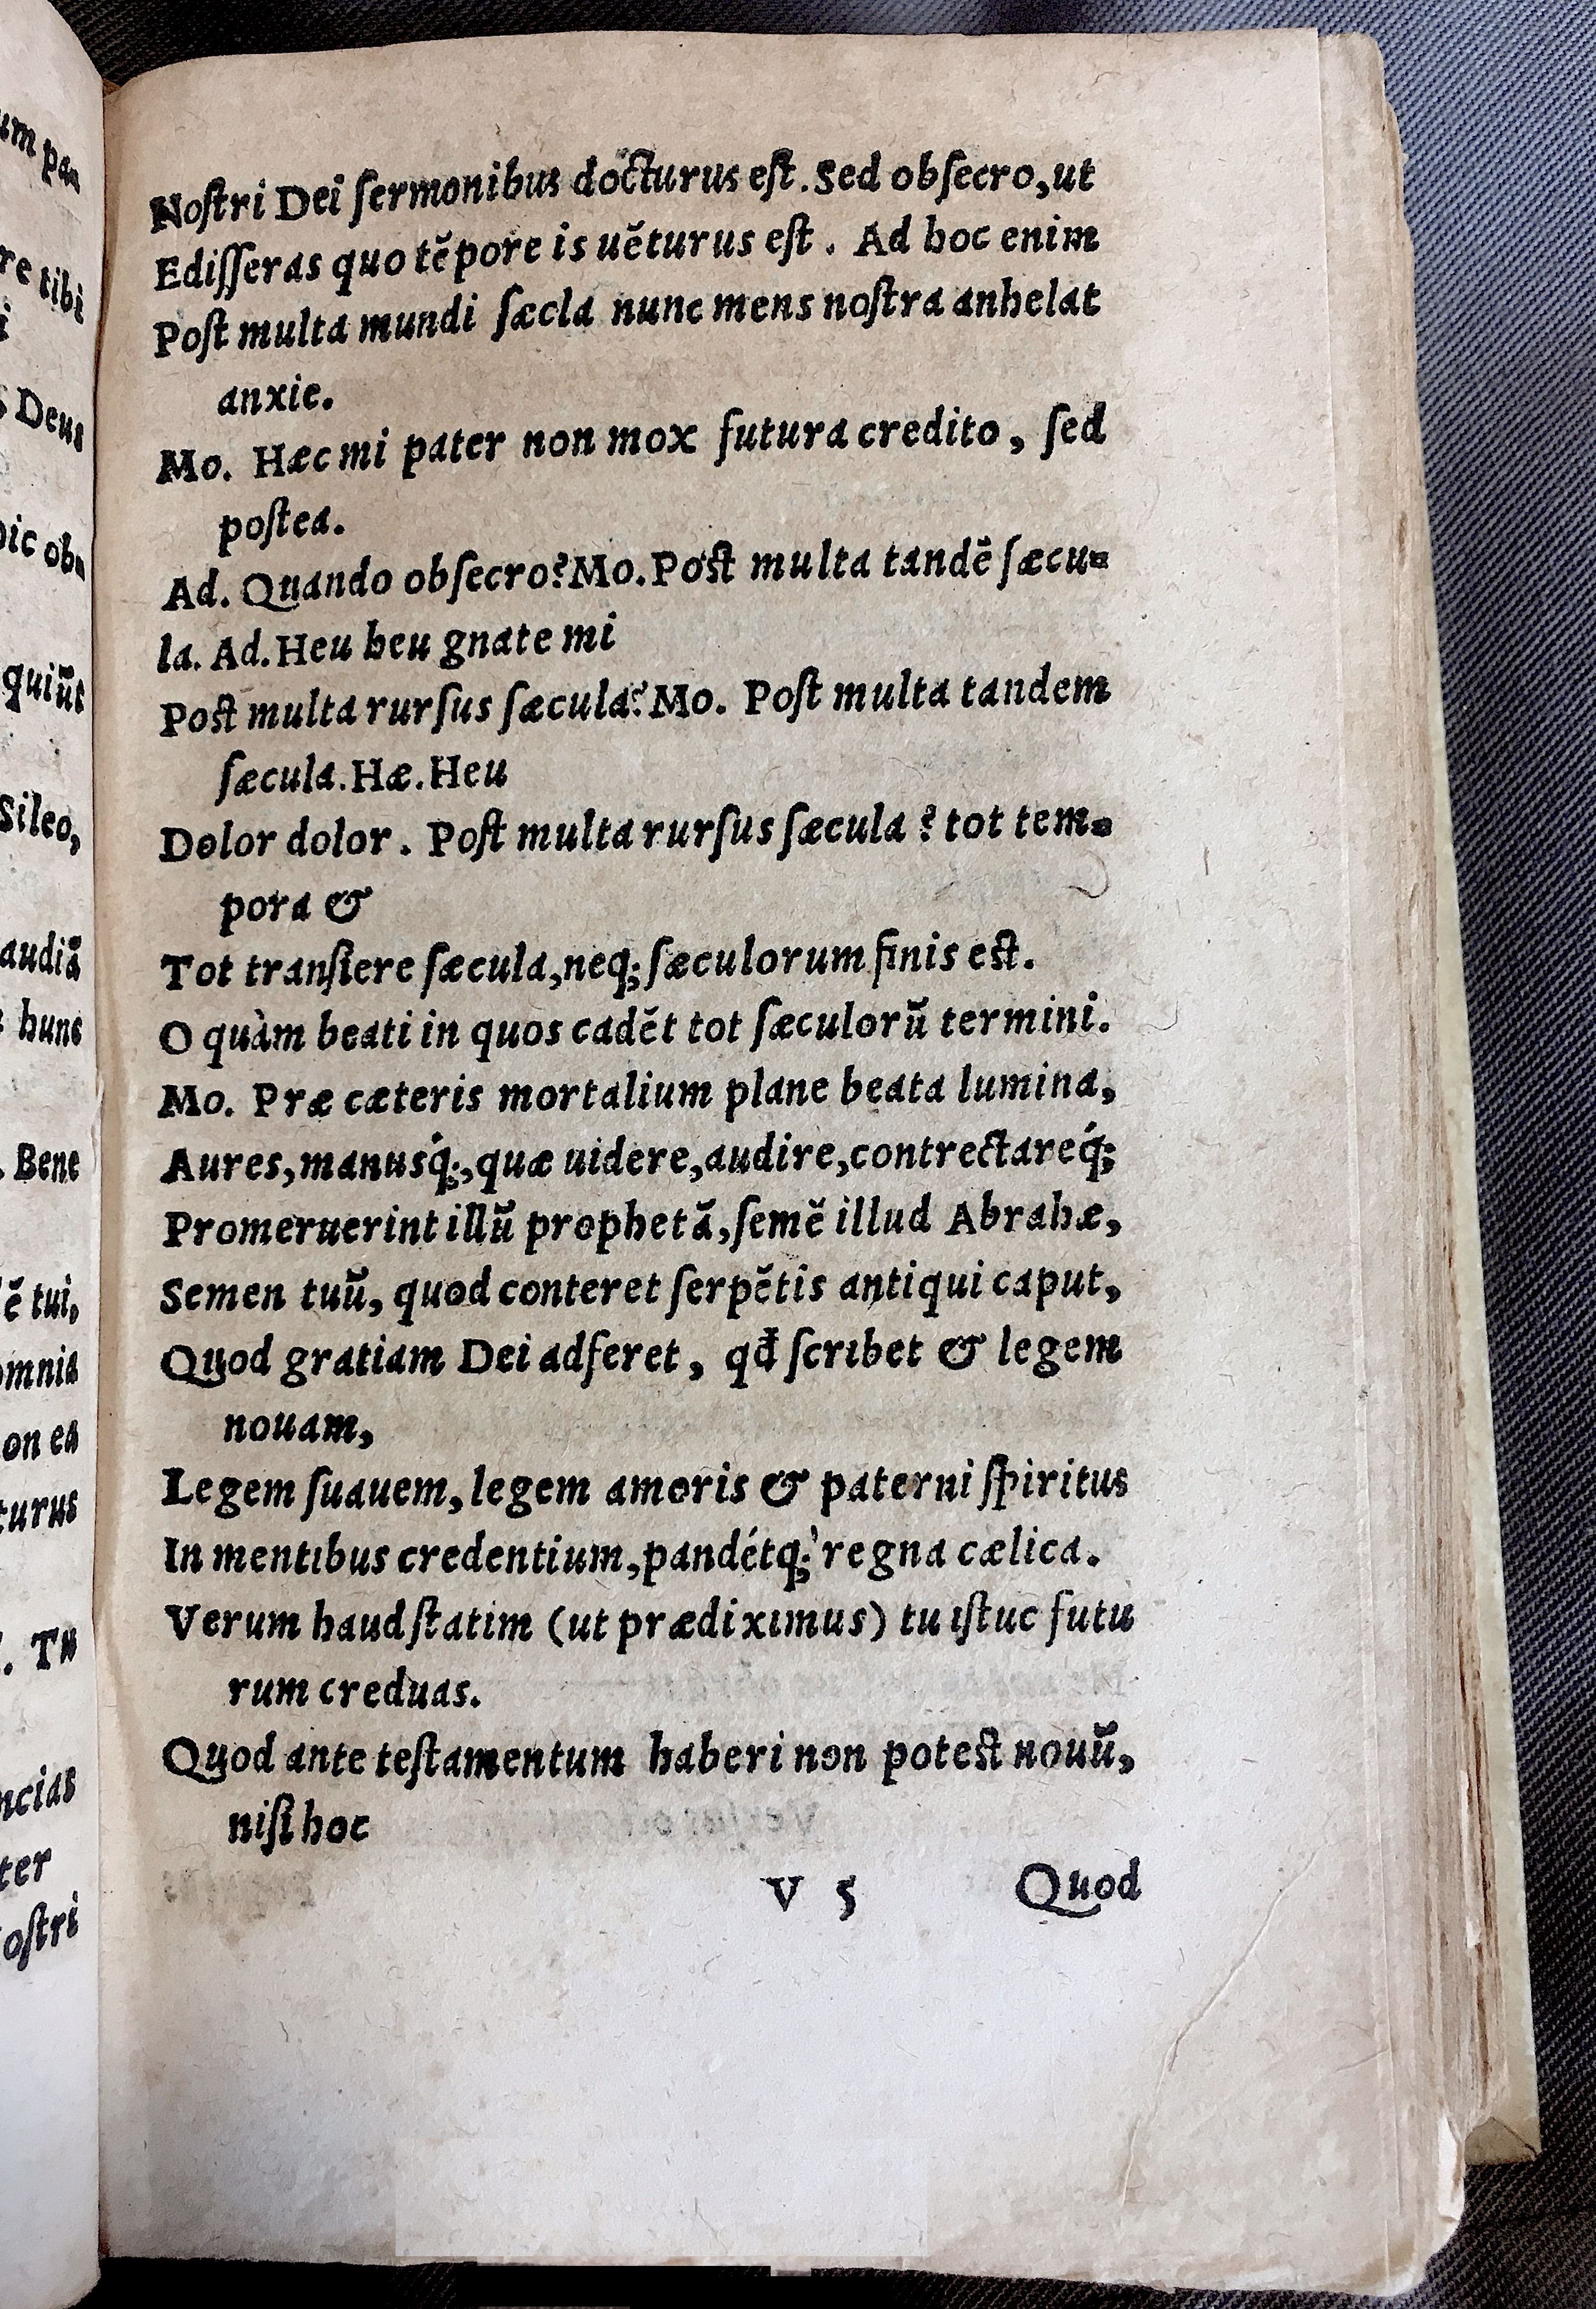 Noſtri Dei ſermonibus docturus eſt. Sed obſecro, ut
Ediſſeras quo tẽpore is uẽturus eſt. Ad hoc enim
Poſt multa mundi ſæcla nunc mens noſtra anhelat
anxie.
Mo. Hæc mi pater non mox futura credito, ſed
poſtea.
Ad. Quando obſecro? Mo. Poſt multa tandẽ ſæcu-
la. Ad. Heu heu gnate mi
Poſt multa rurſus ſæcula? Mo. Poſt multa tandem
ſæcula. Hæ. Heu
Dolor dolor. Poſt multa rurſus ſæcula? tot tem-
pora &
Tot tranſiere ſæcula, neq; ſæculorum finis eſt.
O quàm beati in quos cadẽt tot ſæculorũ termini.
Mo. Præ cæteris mortalium plane beata lumina,
Aures, manusq́;, quæ uidere, audire, contrectareq́;
Promeruerint illũ prophetã, ſemẽ illud Abrahæ,
Semen tuũ, quod conteret ſerpẽtis antiqui caput,
Quod gratiam Dei adferet, qđ ſcribet & legem
nouam,
Legem ſuauem, legem amoris & paterni ſpiritus
In mentibus credentium, pandétq; regna cælica.
Verum haud ſtatim (ut prædiximus) tu iſtuc futu
rum creduas.
Quod ante teſtamentum haberi non poteſt nouũ,
niſi hoc
V 5 Quod
um pa
re tibi
i
s Deus
hic ob
quiũt
Sileo,
audiã
hunc
. Bene
ẽ tui,
omnia
on ea
turus
. Tu
ncias
ter
oſtri